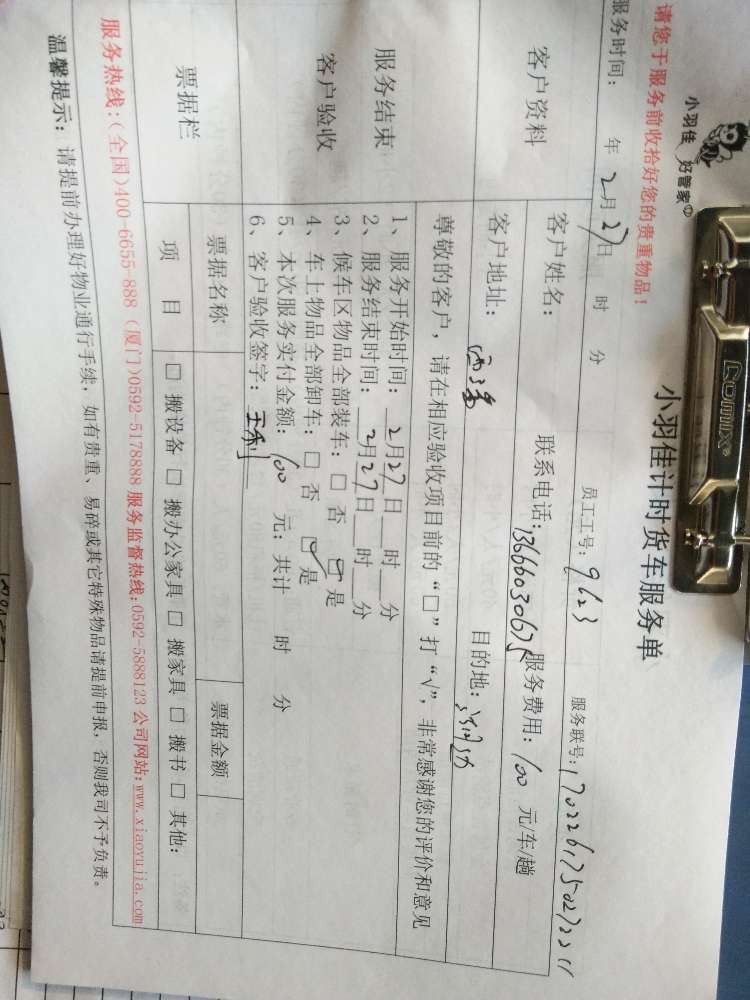 小羽佳 好管家
Comix
小羽佳计时货车服务单
请您于服务前收拾好您的贵重物品!
服务时间: 年 2月27日 时 分 员工工号: 9623 服务联号:
客户资料
客户姓名: 联系电话: 13666030675 服务费用: 100 元/车/趟
客户地址: 目的地:
服务结束
客户验收
尊敬的客户，请在相应验收项目前的“□”打“√”，非常感谢您的评价和意见
1、服务开始时间: 2月27日 时 分
2、服务结束时间: 2月27日 时 分
3、候车区物品全部装车: □ 否 ☑ 是
4、车上物品全部卸车: □ 否 ☑ 是
5、本次服务实付金额: 100 元; 共计 时 分
6、客户验收签字:
票据栏
票据名称 票据金额
项 目 □ 搬设备 □ 搬办公家具 □ 搬家具 □ 搬书 □ 其他:
服务热线:(全国)400-6655-888 (厦门)0592-5178888 服务监督热线:0592-5888123 公司网站:www.xiaoyujia.com
温馨提示: 请提前办理好物业通行手续, 如有贵重、易碎或其它特殊物品请提前申报, 否则我司不予负责。